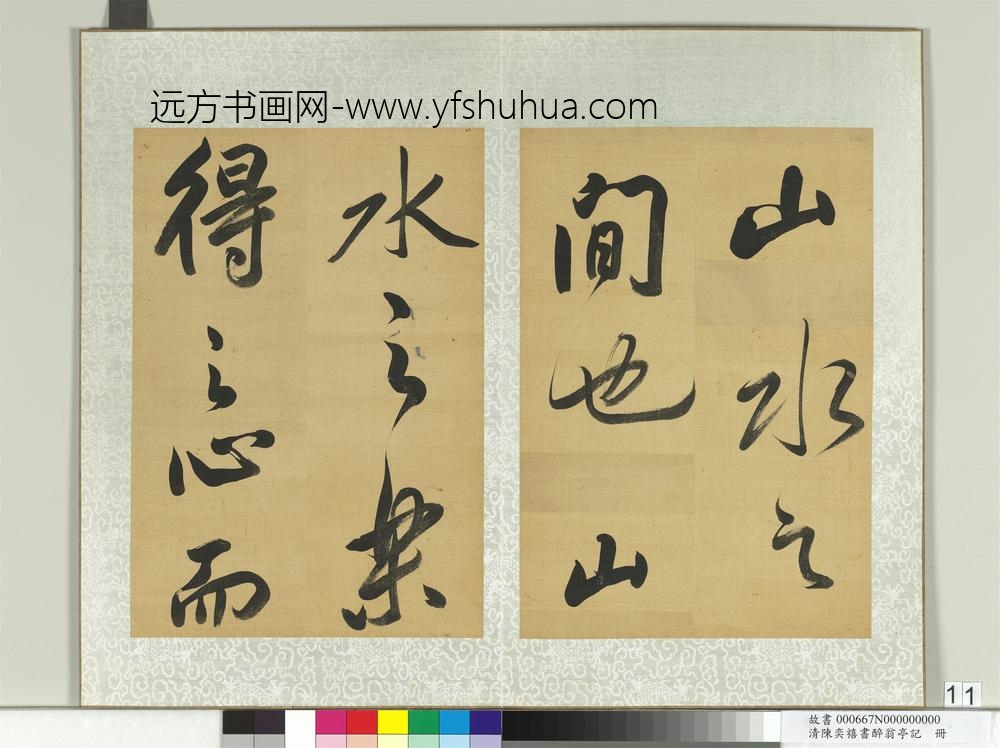 远方书画网-www.yfshuhua.com
山水之
間也山
水之樂
得之心而
11
故書 000667N000000000
清陳奕禧書醉翁亭記 冊